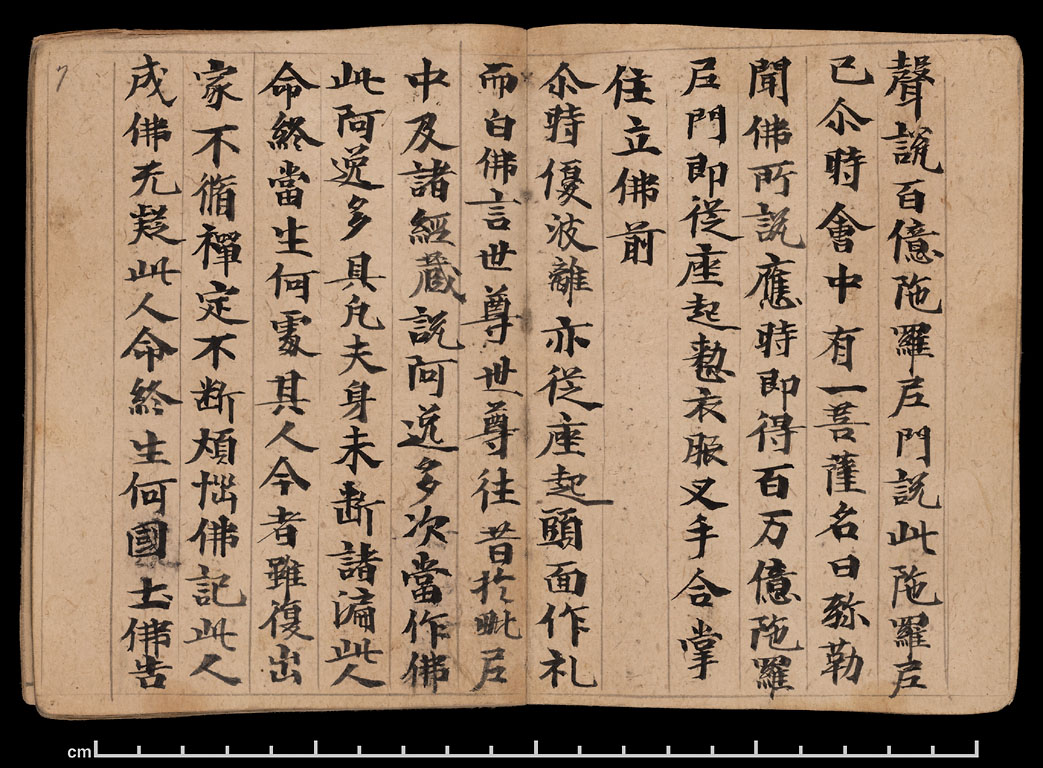 聲說百億陁羅尼門說此陁羅尼
已尒時會中有一菩薩名曰弥勒
聞佛所說應時即得百万億陁羅
尼門即從座起懃衣服叉手合掌
住立佛前
尒時優波離亦從座起頭面作礼
而白佛言世尊世尊往昔於毗尼
中及諸經藏說阿逸多次當作佛
此阿逸多具凡夫身未断諸漏此人
命終當生何處其人今者雖復出
家不循禪定不断煩惱佛記此人
成佛无疑此人命終生何國土佛告
7